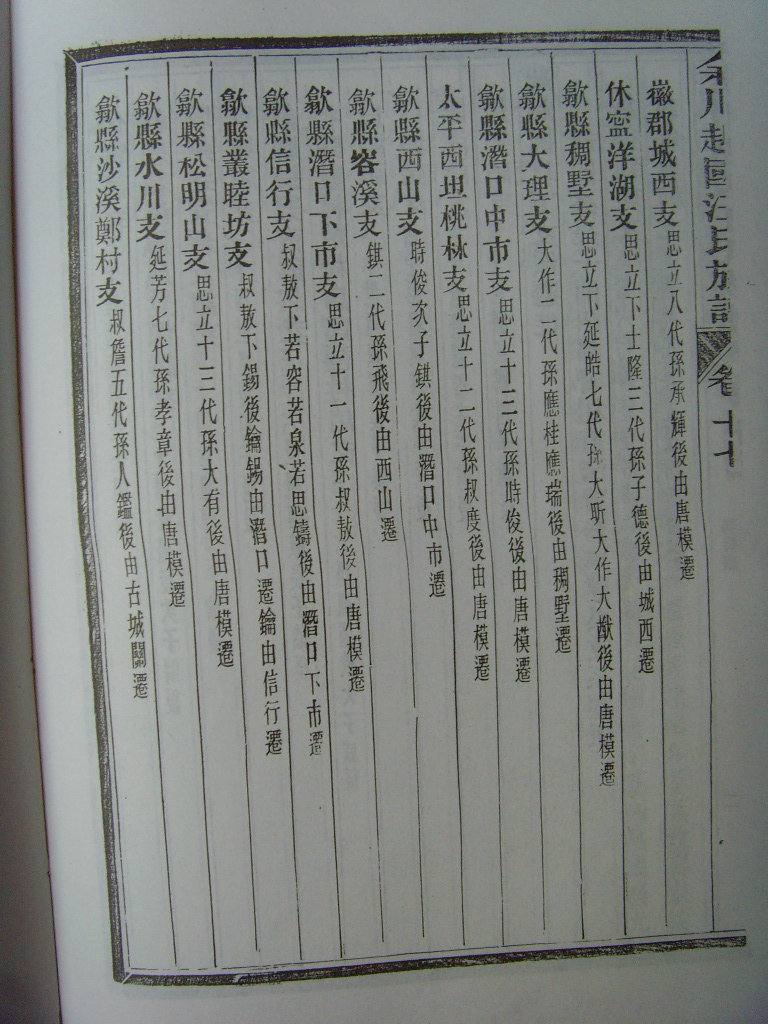 越國汪氏族譜 卷十七
徽郡城西支 思立八代孫承輝後由唐模遷
休寍洋湖支 思立下士隆三代孫子德後由城西遷
歙縣稠墅支 思立下延皓七代孫大昕大作大猷後由唐模遷
歙縣大理支 大作二代孫應桂應瑞後由稠墅遷
歙縣潛口中市支 思立十三代孫時俊後由唐模遷
太平西坦桃林支 思立十二代孫叔度後由唐模遷
歙縣西山支 時俊次子錤後由潛口中市遷
歙縣容溪支 錤二代孫飛後由西山遷
歙縣潛口下市支 思立十一代孫叔敖後由唐模遷
歙縣信行支 叔敖下若容若泉若思鑄後由潛口下市遷
歙縣叢睦坊支 叔敖下錫後鑰錫由潛口遷鑰由信行遷
歙縣松明山支 思立十三代孫大有後由唐模遷
歙縣水川支 延芳七代孫孝章後由唐模遷
歙縣沙溪鄭村支 叔詹五代孫人鑑後由古城關遷